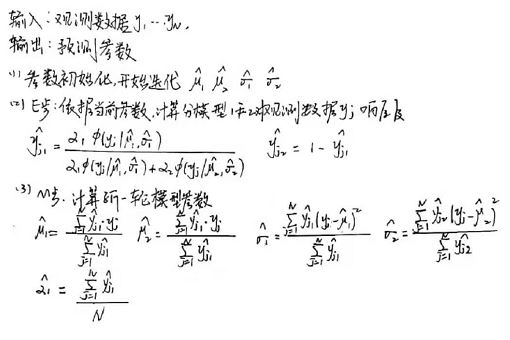 输入:观测数据 y₁ ⋯ y_N.
输出:预测参数
(1) 参数初始化,开始迭代 μ̂₁ μ̂₂ σ̂₁ σ̂₂
(2) E步:依据当前参数,计算分模型1和2对观测数据y_j响应度
ŷ_{j1} = α₁ φ(y_j/μ̂₁,σ̂₁) / (α₁ φ(y_j/μ̂₁,σ̂₁) + α₂ φ(y_j/μ̂₂,σ̂₂)) ŷ_{j2} = 1 - ŷ_{j1}
(3) M步. 计算新一轮模型参数
μ̂₁ = ∑_{j=1}^N ŷ_{j1}·y_j / ∑_{j=1}^N ŷ_{j1} μ̂₂ = ∑_{j=1}^N ŷ_{j1}·y_j / ∑_{j=1}^N ŷ_{j1} σ̂₁ = ∑_{j=1}^N ŷ_{j1}(y_j-μ̂₁)² / ∑_{j=1}^N ŷ_{j1} σ̂₂ = ∑_{j=1}^N ŷ_{j2}(y_j-μ̂₂)² / ∑_{j=1}^N ŷ_{j2}
α̂₁ = ∑_{j=1}^N ŷ_{j1} / N